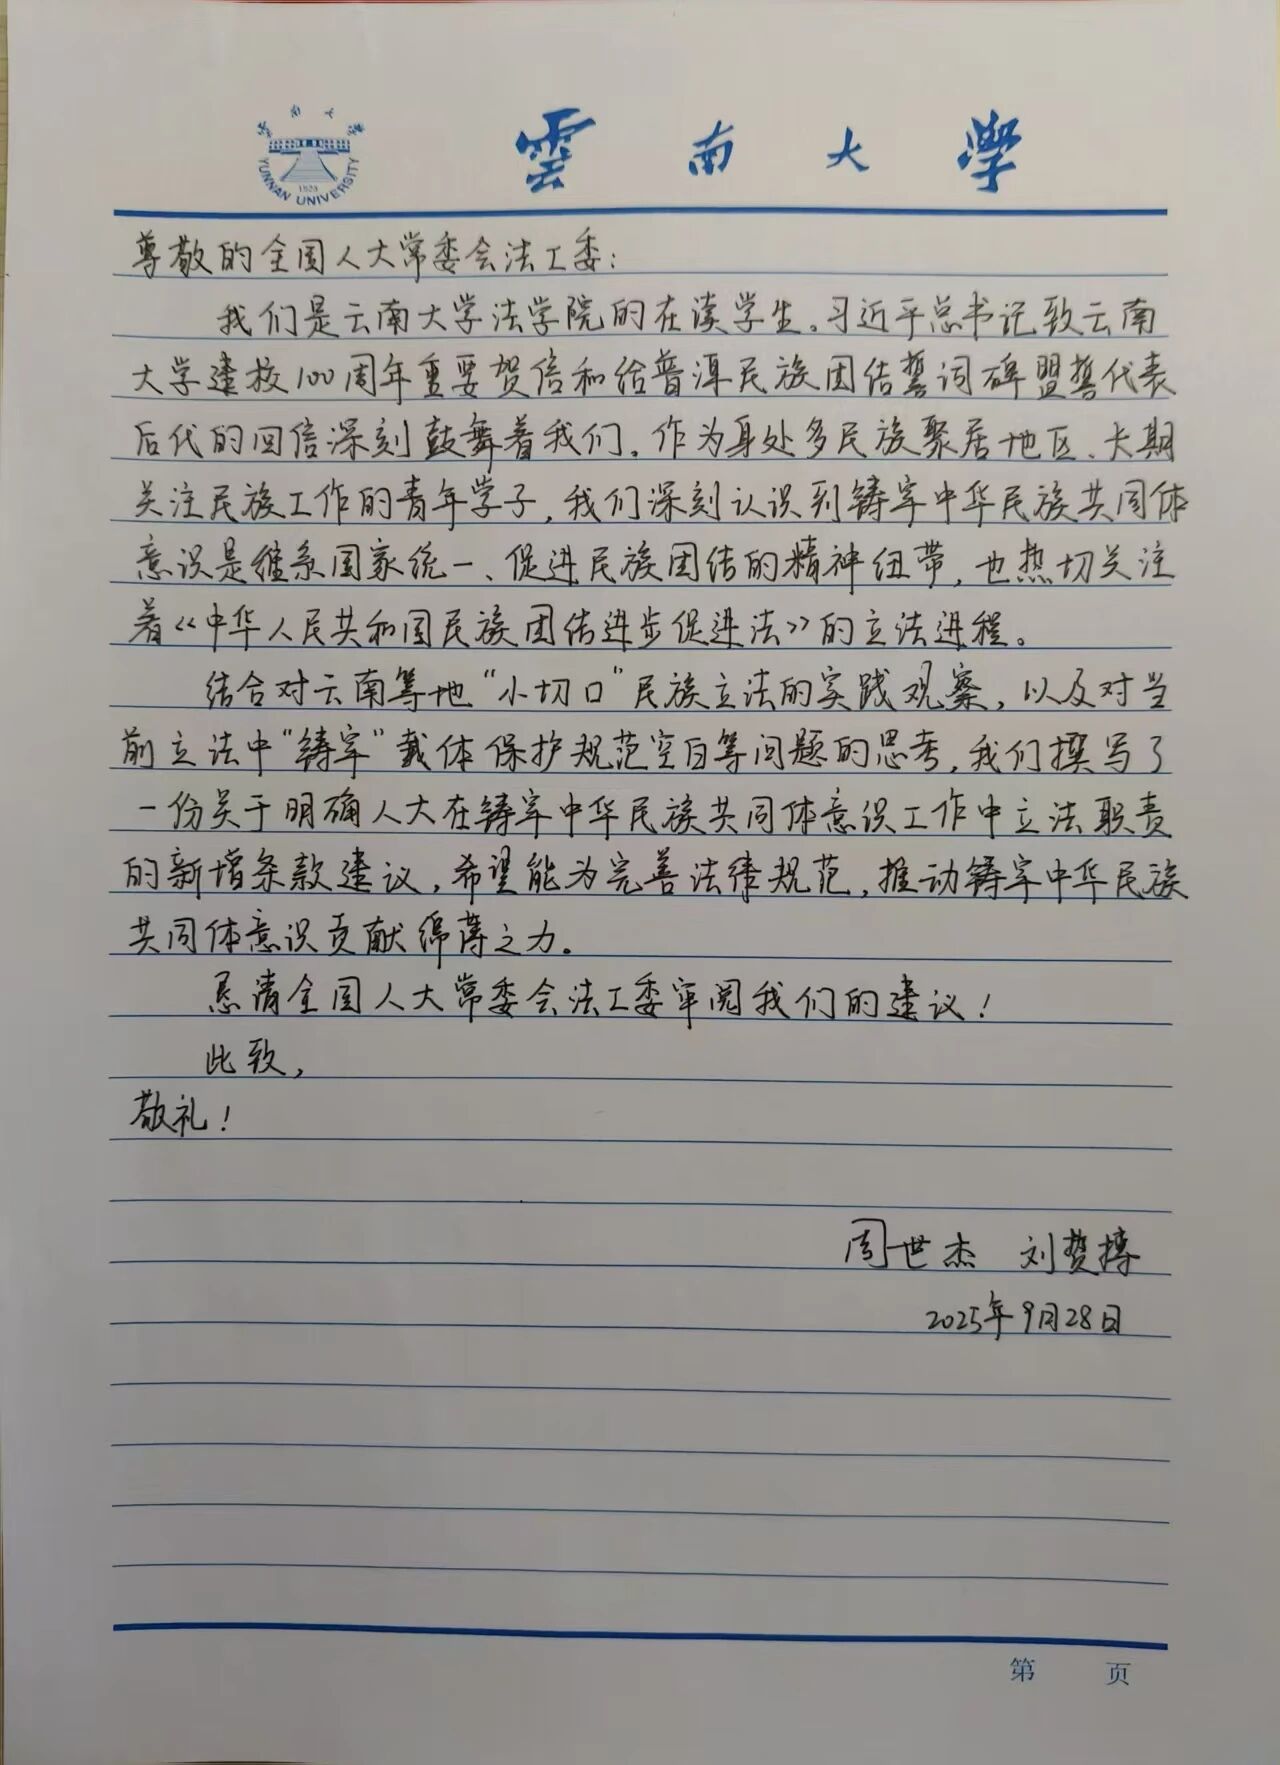 雲南大學
YUNNAN UNIVERSITY
1923
尊敬的全国人大常委会法工委：
我们是云南大学法学院的在读学生。习近平总书记致云南
大学建校100周年重要贺信和给普洱民族团结誓词碑盟誓代表
后代的回信深刻鼓舞着我们。作为身处多民族聚居地区、长期
关注民族工作的青年学子，我们深刻认识到铸牢中华民族共同体
意识是维系国家统一、促进民族团结的精神纽带，也热切关注
着《中华人民共和国民族团结进步促进法》的立法进程。
结合对云南等地“小切口”民族立法的实践观察，以及对当
前立法中“铸牢”载体保护规范空白等问题的思考，我们撰写了
一份关于明确人大在铸牢中华民族共同体意识工作中立法职责
的新增条款建议，希望能为完善法律规范，推动铸牢中华民族
共同体意识贡献绵薄之力。
恳请全国人大常委会法工委审阅我们的建议！
此致，
敬礼！
周世杰 刘赟搏
2025年9月28日
第 页